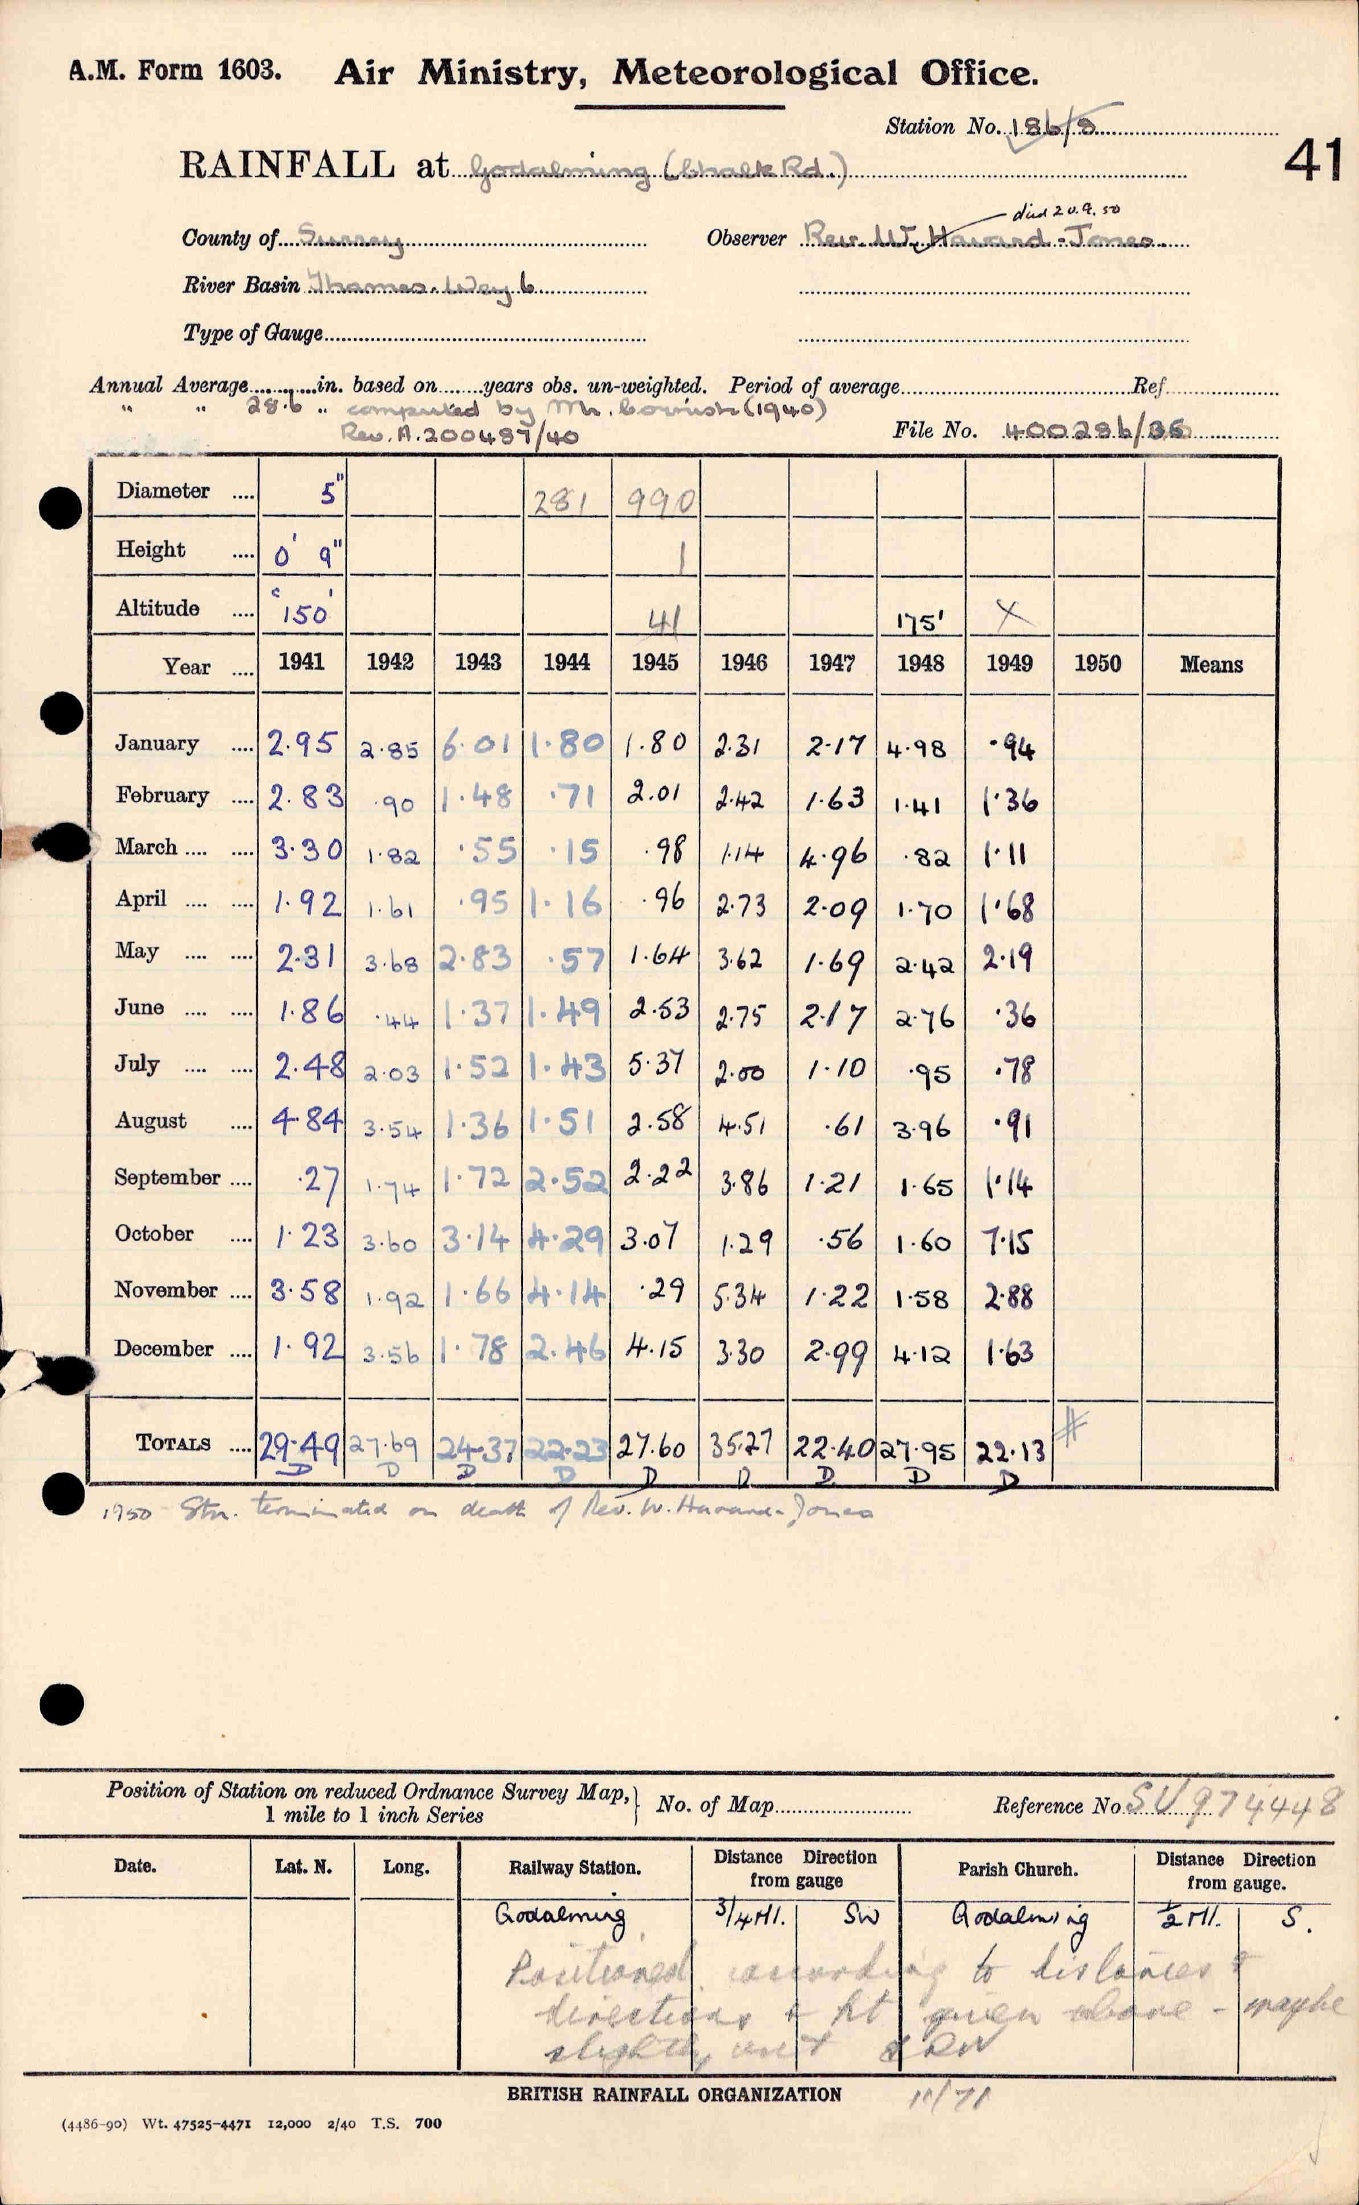 A.M. Form 1603. Air Ministry, Meteorological Office.
Station No. 186/9
41
RAINFALL at Godalming (Chalk Rd.)
died 20.9.50
County of Surrey Observer Rev. W. Havard-Jones.
River Basin Thames. Wey 6
Type of Gauge
Annual Average in. based on years obs. un-weighted. Period of average Ref.
" " 28.6 " computed by Mr. (1940)
Rev. A.200487/40 File No. 400286/36
Diameter .... 5" 281 990
Height .... 0' 9" 1
Altitude .... c150' 41 175' X
Year .... 1941 1942 1943 1944 1945 1946 1947 1948 1949 1950 Means
January .... 2.95 2.85 6.01 1.80 1.80 2.31 2.17 4.98 .94
February .... 2.83 .90 1.48 .71 2.01 2.42 1.63 1.41 1.36
March .... .... 3.30 1.82 .55 .15 .98 1.14 4.96 .82 1.11
April .... .... 1.92 1.61 .95 1.16 .96 2.73 2.09 1.70 1.68
May .... .... 2.31 3.68 2.83 .57 1.64 3.62 1.69 2.42 2.19
June .... .... 1.86 .44 1.37 1.49 2.53 2.75 2.17 2.76 .36
July .... .... 2.48 2.03 1.52 1.43 5.37 2.00 1.10 .95 .78
August .... 4.84 3.54 1.36 1.51 2.58 4.51 .61 3.96 .91
September .... .27 1.74 1.72 2.52 2.22 3.86 1.21 1.65 1.14
October .... 1.23 3.60 3.14 4.29 3.07 1.29 .56 1.60 7.15
November .... 3.58 1.92 1.66 4.14 .29 5.34 1.22 1.58 2.88
December .... 1.92 3.56 1.78 2.46 4.15 3.30 2.99 4.12 1.63
TOTALS .... 29.49 27.69 24.37 22.23 27.60 35.27 22.40 27.95 22.13 #
D D D D D D D D D
1950 Stn. terminated on death of Rev. W. Havard-Jones
Position of Station on reduced Ordnance Survey Map, 1 mile to 1 inch Series } No. of Map Reference No. SU 974448
Date. Lat. N. Long. Railway Station. Distance Direction from gauge Parish Church. Distance Direction from gauge.
Godalming 3/4 MI. SW Godalming 1/2 MI. S.
Positioned according to distances &
directions & ht given above - maybe
slightly out
BRITISH RAINFALL ORGANIZATION 11/71
(4486-90) Wt. 47525-4471 12,000 2/40 T.S. 700